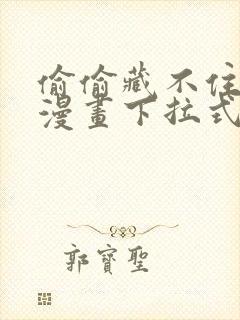 偷偷藏不住
漫畫下拉式
郭寶聖